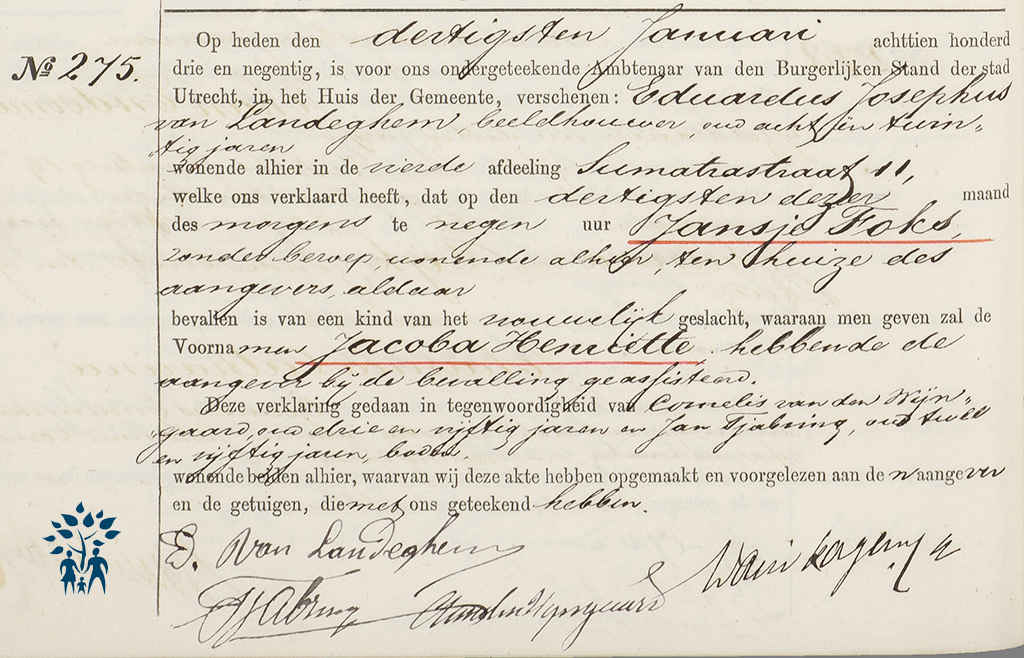 No 275.
Op heden den dertigsten Januari achttien honderd
drie en negentig, is voor ons ondergeteekende Ambtenaar van den Burgerlijken Stand der stad
Utrecht, in het Huis der Gemeente, verschenen: Eduardus Josephus
van Landeghem, beeldhouwer, oud acht en twin-
tig jaren
wonende alhier in de vierde afdeeling Sumatrastraat 11,
welke ons verklaard heeft, dat op den dertigsten dezer maand
des morgens te negen uur Jansje Foks,
zonder beroep, wonende alhier, ten huize des
aangevers, aldaar
bevallen is van een kind van het vrouwelijk geslacht, waaraan men geven zal de
Voornamen Jacoba Henriette hebbende de
aangever bij de bevalling geassisteerd.
Deze verklaring gedaan in tegenwoordigheid van Cornelis van den Wijn-
gaard, oud drie en vijftig jaren en Jan Tjabring, oud twee
en vijftig jaren, boden.
wonende beiden alhier, waarvan wij deze akte hebben opgemaakt en voorgelezen aan den aangever
en de getuigen, die met ons geteekend hebben.
E. van Landeghem
Tjabring